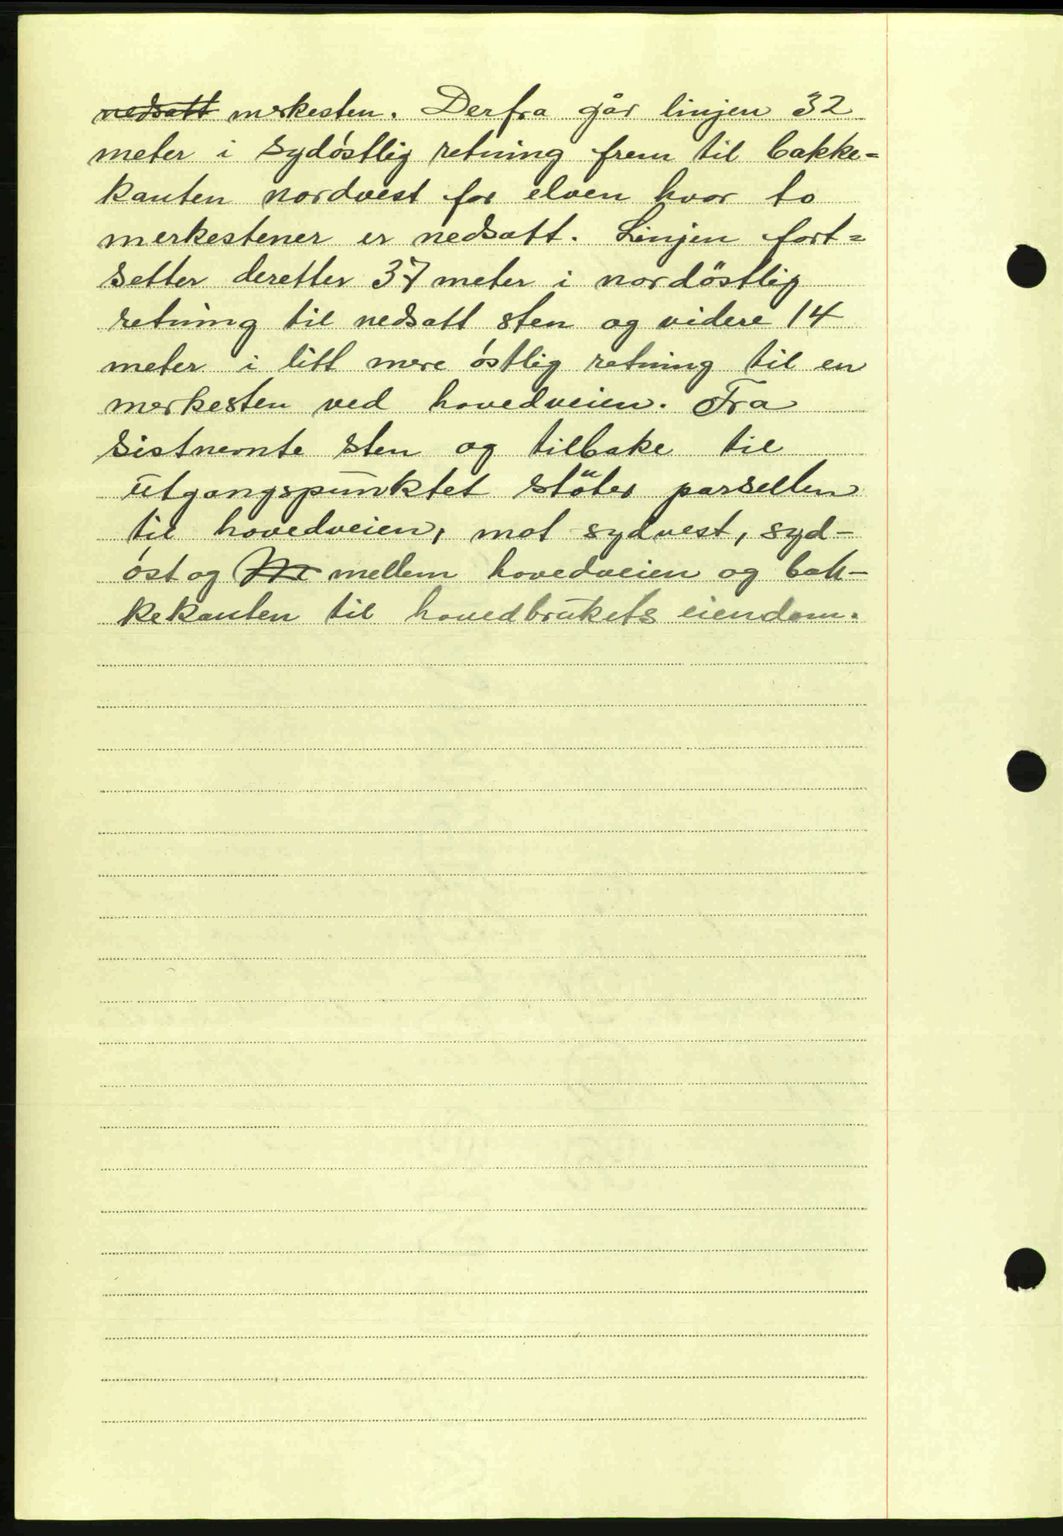 nedsatt merkesten. Derfra går linjen 32
meter i sydøstlig retning frem til bakke=
kanten nordvest for elven hvor to
merkestener er nedsatt. Linjen fort=
setter deretter 37 meter i nordøstlig
retning til nedsatt sten og videre 14
meter i litt mere østlig retning til en
merkesten ved hovedveien. Fra
sistnevnte sten og tilbake til
utgangspunktet støter parsellen
til hovedveien, mot sydvest, syd-
øst og mellem hovedveien og bak-
kekanten til hovedbrukets eiendom.